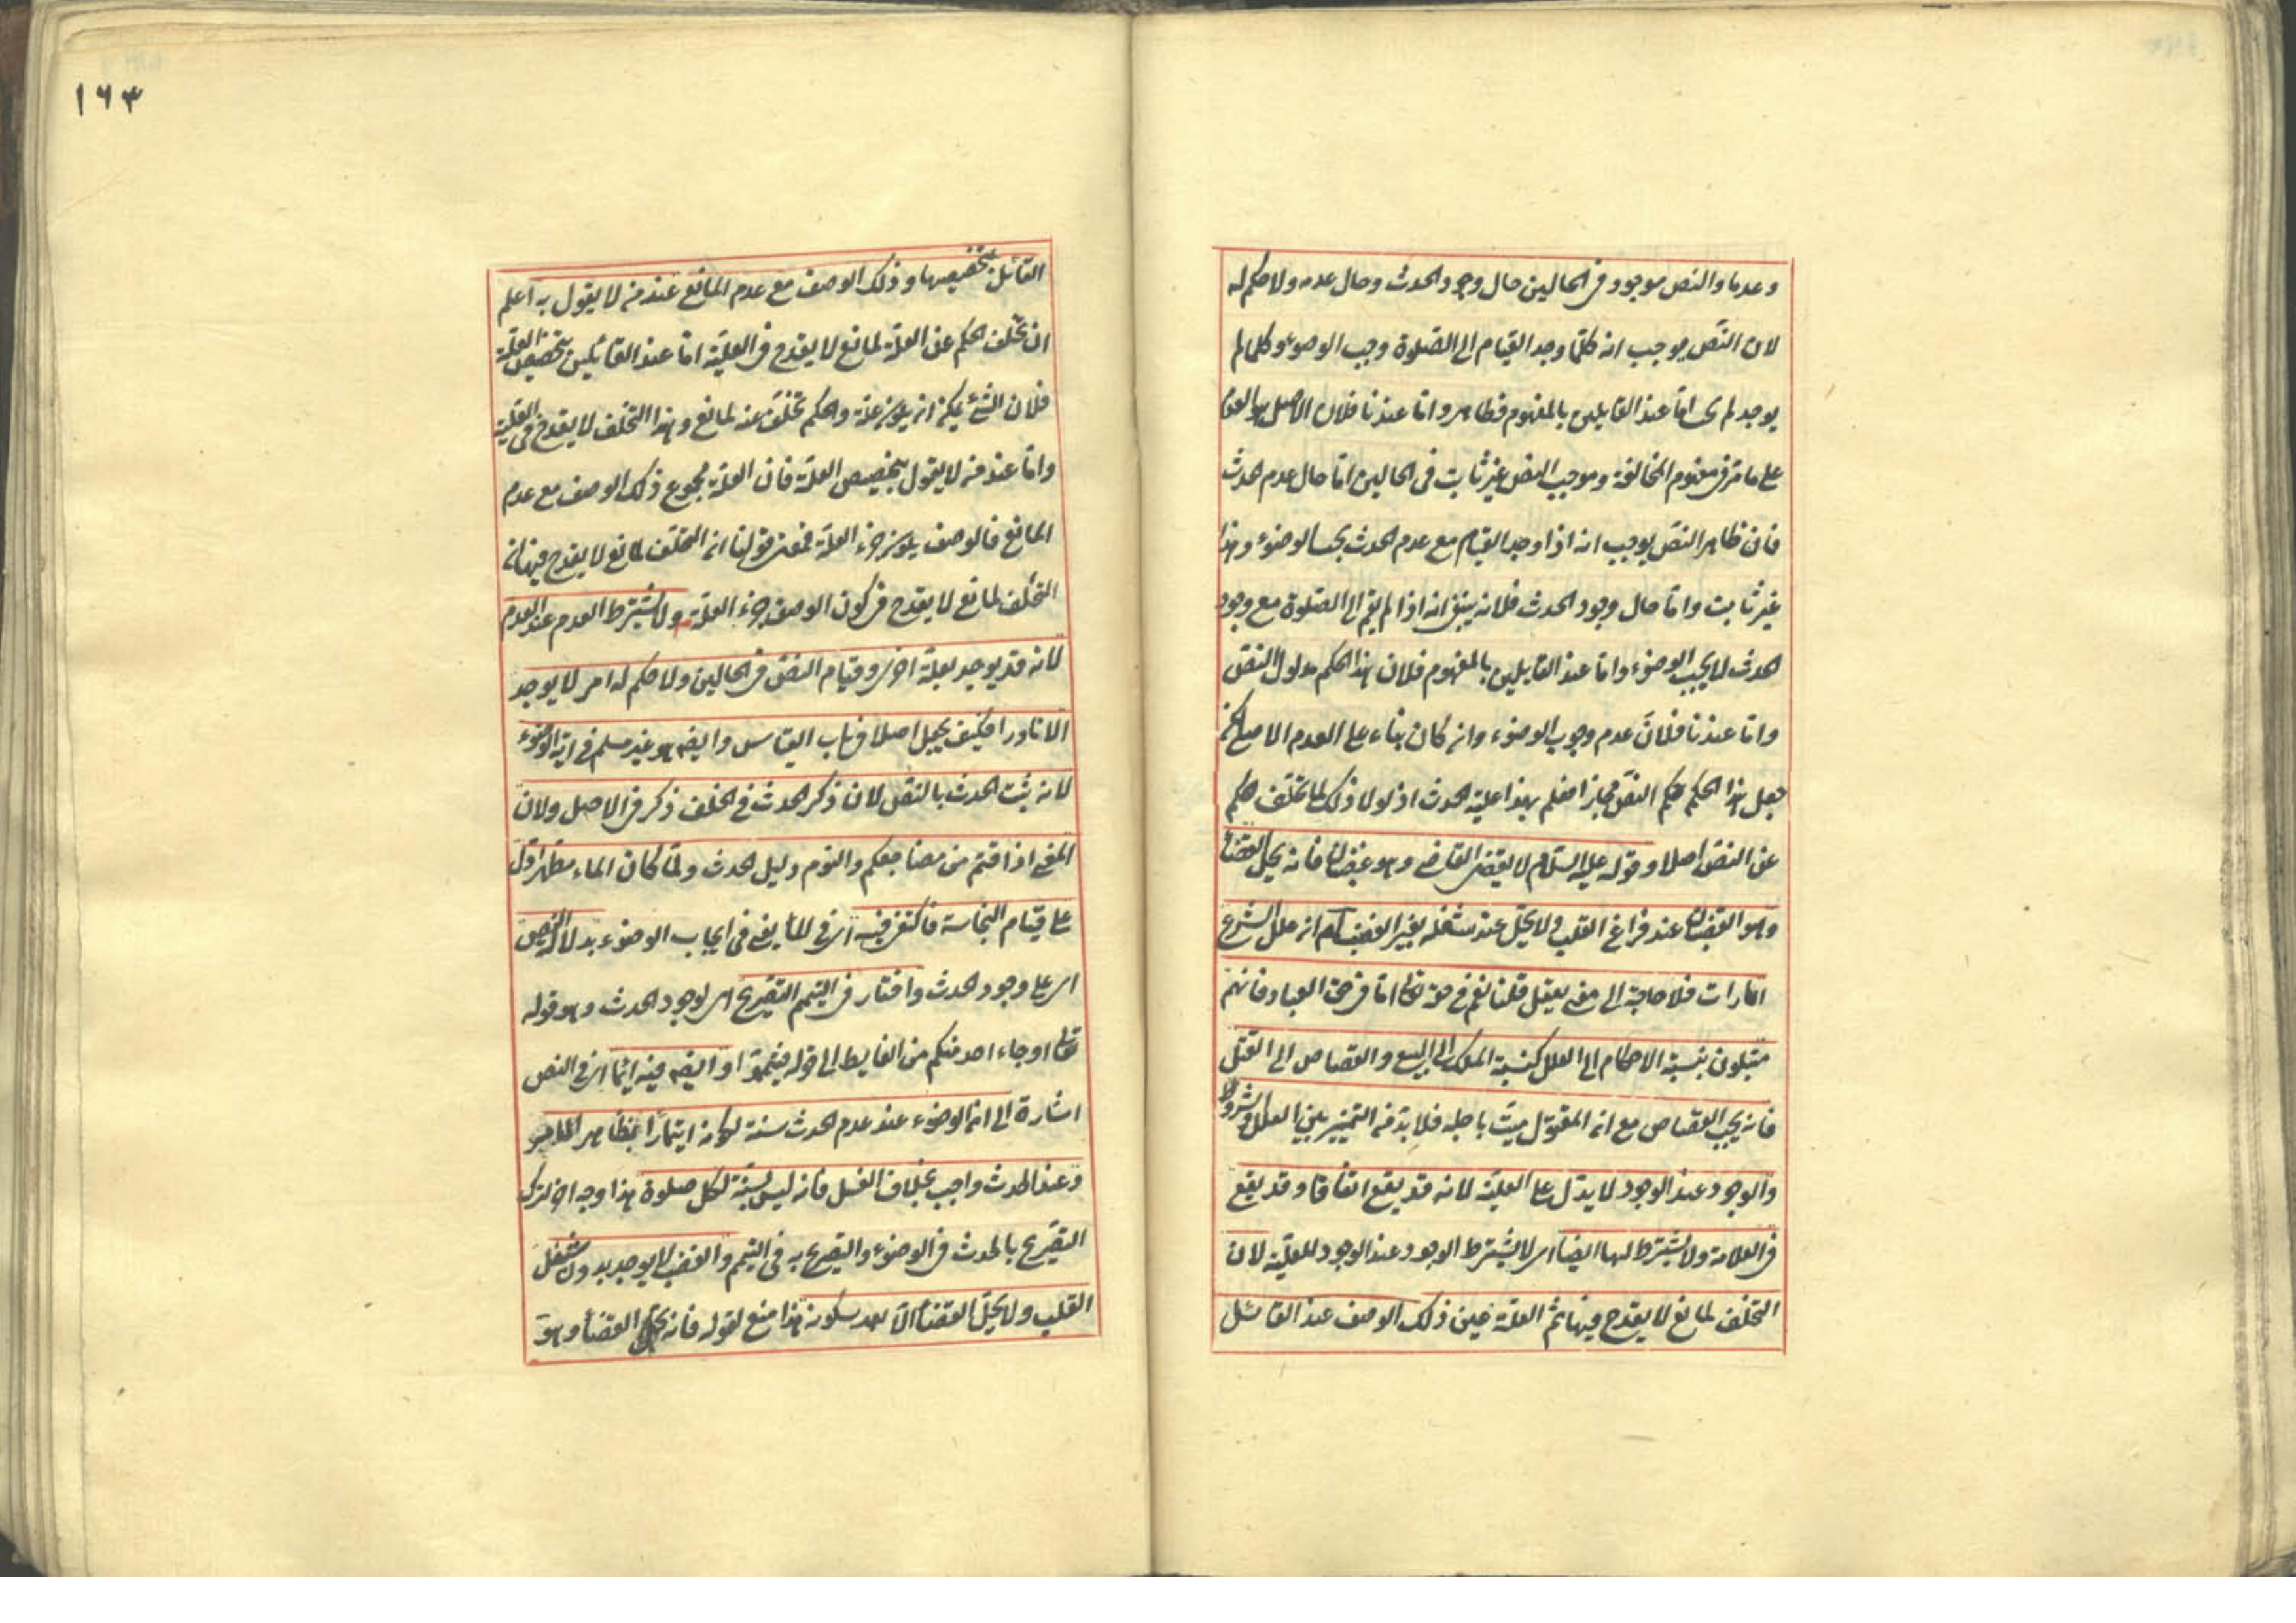 وعدما والنص موجود فى الحالين حال وجود الحدث وحال عدمه ولا حكم له
لان النص يوجب انه كلما وجد القيام الى الصلوة وجب الوضوء وكلما لم
يوجد لم يجب اما عند القايلين بالمفهوم فظاهر واما عندنا فلان الاصل هو العدم
على ما مر فى مفهوم المخالفة وموجب النص غير ثابت فى الحالين اما حال عدم الحدث
فان ظاهر النص يوجب انه اذا وجد القيام مع عدم الحدث يجب الوضوء وهذا
غير ثابت واما حال وجود الحدث فلانه ينبغى انه اذا لم يقم الى الصلوة مع وجود
الحدث لا يجب الوضوء واما عند القايلين بالمفهوم فلان هذا الحكم مدلول النص
واما عندنا فلان عدم وجوب الوضوء وان كان بناء على العدم الاصلى لكن
جعل هذا الحكم حكم النص مجازا فعلم بهذا علية الحدث اذ لولا ذلك لما تخلف حكم
عن النص اصلا وقوله عليه السلام لا يقضى القاضى وهو غضبان فانه يحل القضاء
وهو الغضبان عند فراغ القلب ولا يحل عند شغله بغير الغضب ان علل الشرع
امارات فلا حاجة الى معنى يعقل قلنا نعم فى حقه تعالى اما فى حق العباد فانهم
مبتلون بنسبة الاحكام الى العلل كنسبة الملك الى البيع والقصاص الى القتل
فانه يجب القصاص مع ان المقتول ميت باجله فلا بد من التمييز بين العلل والشروط
والوجود عند الوجود لا يدل على العلية لانه قد يقع اتفاقا وقد يقع
فى العلامة ولا يشترط لها ايضا اى لا يشترط الوجود عند الوجود للعلية لان
التخلف لمانع لا يقدح فيها ثم العلة عين ذلك الوصف عند القائل
١٦٣
القائل بتخصيصها وذلك الوصف مع عدم المانع عند من لا يقول به اعلم
ان تخلف الحكم عن العلة لمانع لا يقدح فى العلية اما عند القائلين بتخصيص العلة
فلان الشئ يمكن ان يكون علة والحكم تخلف عنه لمانع وهذا التخلف لا يقدح فى العلية
واما عند من لا يقول بتخصيص العلة فان العلة مجموع ذلك الوصف مع عدم
المانع فالوصف يكون جزء العلة فمعنى قولنا ان التخلف لمانع لا يقدح فيها ان
التخلف لمانع لا يقدح فى كون الوصف جزء العلة ولا يشترط العدم عند العدم
لانه قد يوجد بعلة اخرى وقيام النص فى الحالين ولا حكم له امر لا يوجد
الا نادرا فكيف يجعل اصلا فى باب القياس وايضه هو غير مسلم فى اية الوضوء
لانه يثبت الحدث بالنص لان ذكر الحدث فى الخلف ذكر فى الاصل ولان
المعنى اذا قمتم من مضاجعكم والنوم دليل الحدث ولما كان الماء مطهرا دل
على قيام النجاسة فاكتفى فيه اى فى الماء يعنى فى ايجاب الوضوء بدلالة النص
اى على وجود الحدث واختار فى التيمم التصريح اى لوجود الحدث وهو قوله
تعالى او جاء احد منكم من الغايط الى قوله فتيمموا وايضه فيه ايماء اى فى النص
اشارة الى ان الوضوء عند عدم الحدث سنة لكونه ايتمارا بظاهر الامر
وعند الحدث واجب بخلاف الغسل فانه ليس بسنة لكل صلوة هذا وجه اخر لترك
التصريح بالحدث فى الوضوء والتصريح به فى التيمم والغضب لا يوجد بدون شغل
القلب ولا يحل القضاء الا بعد سكونه هذا منع لقوله فانه يحل القضاء وهو